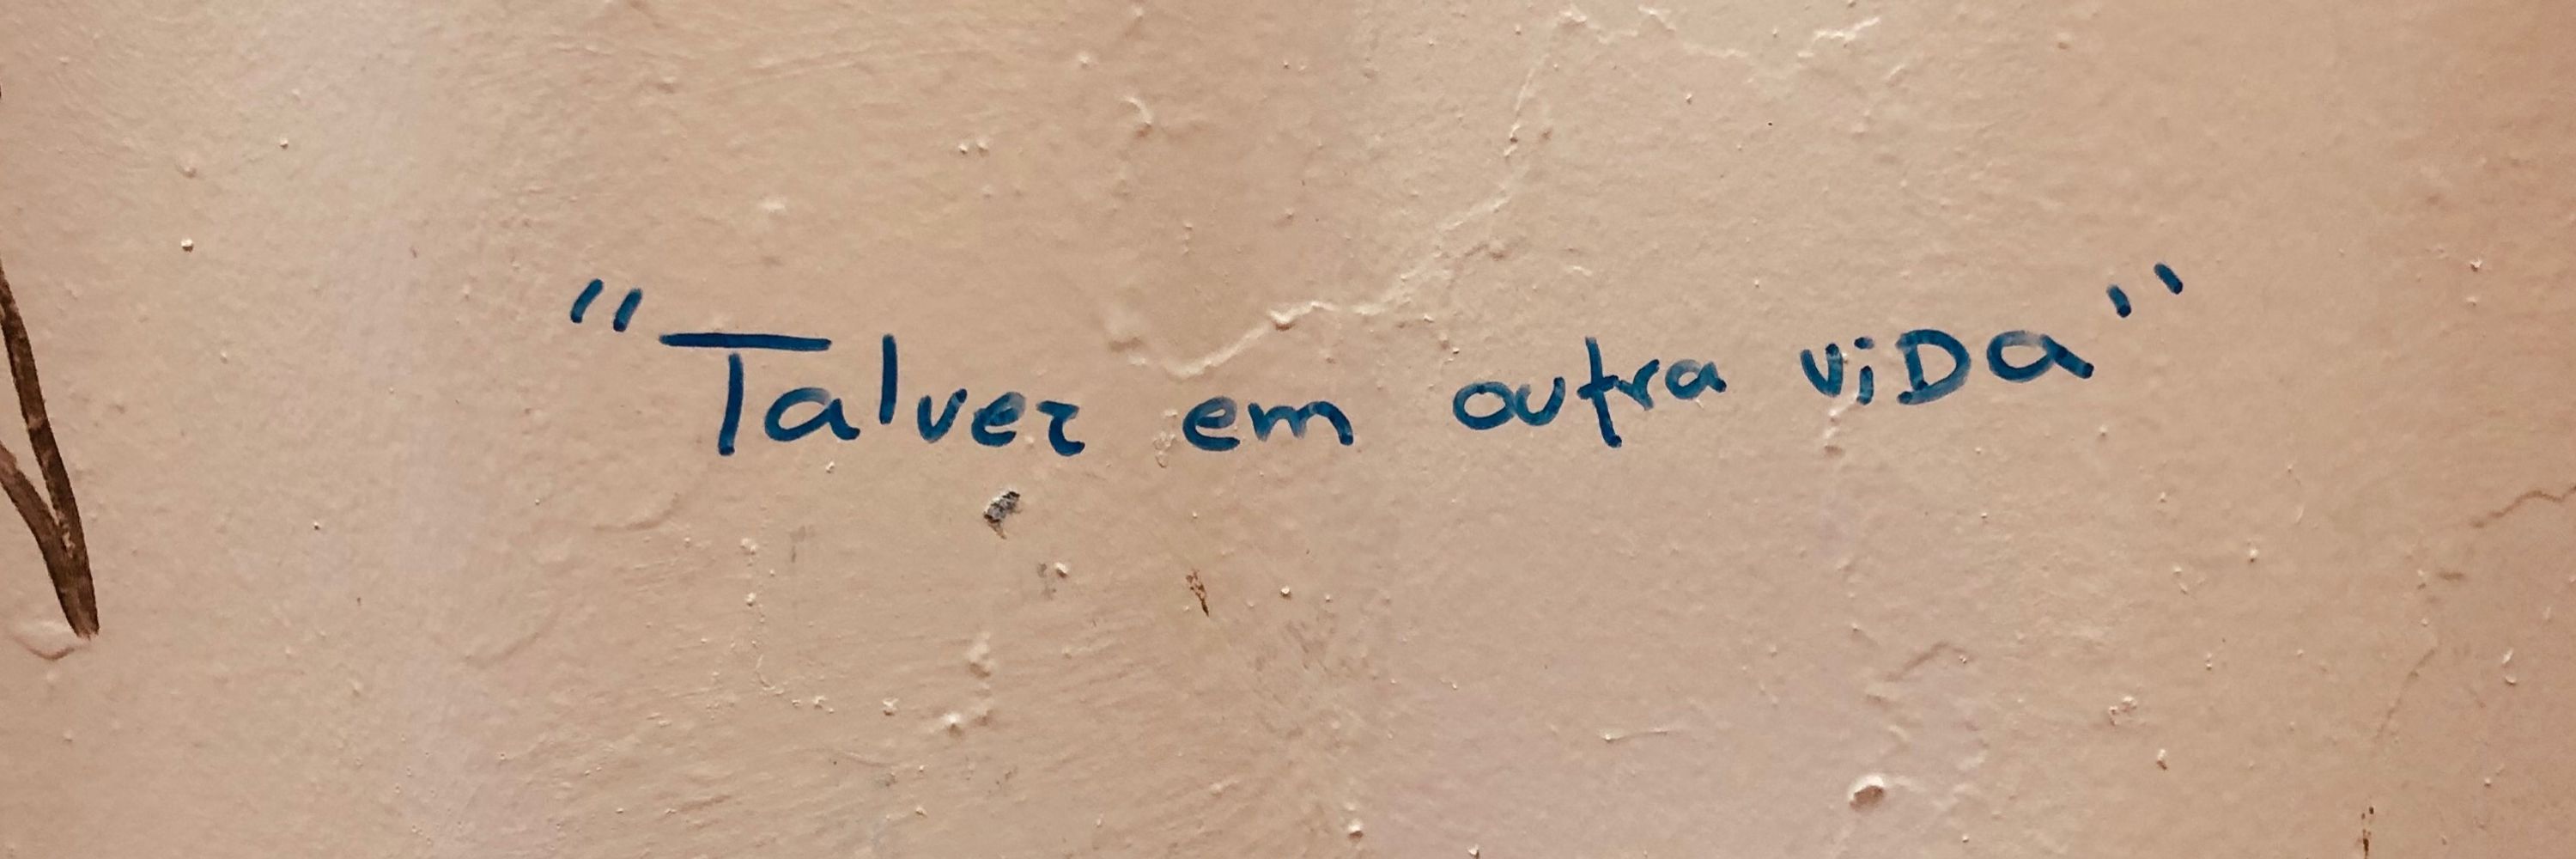 "Talvez em outra viDa"